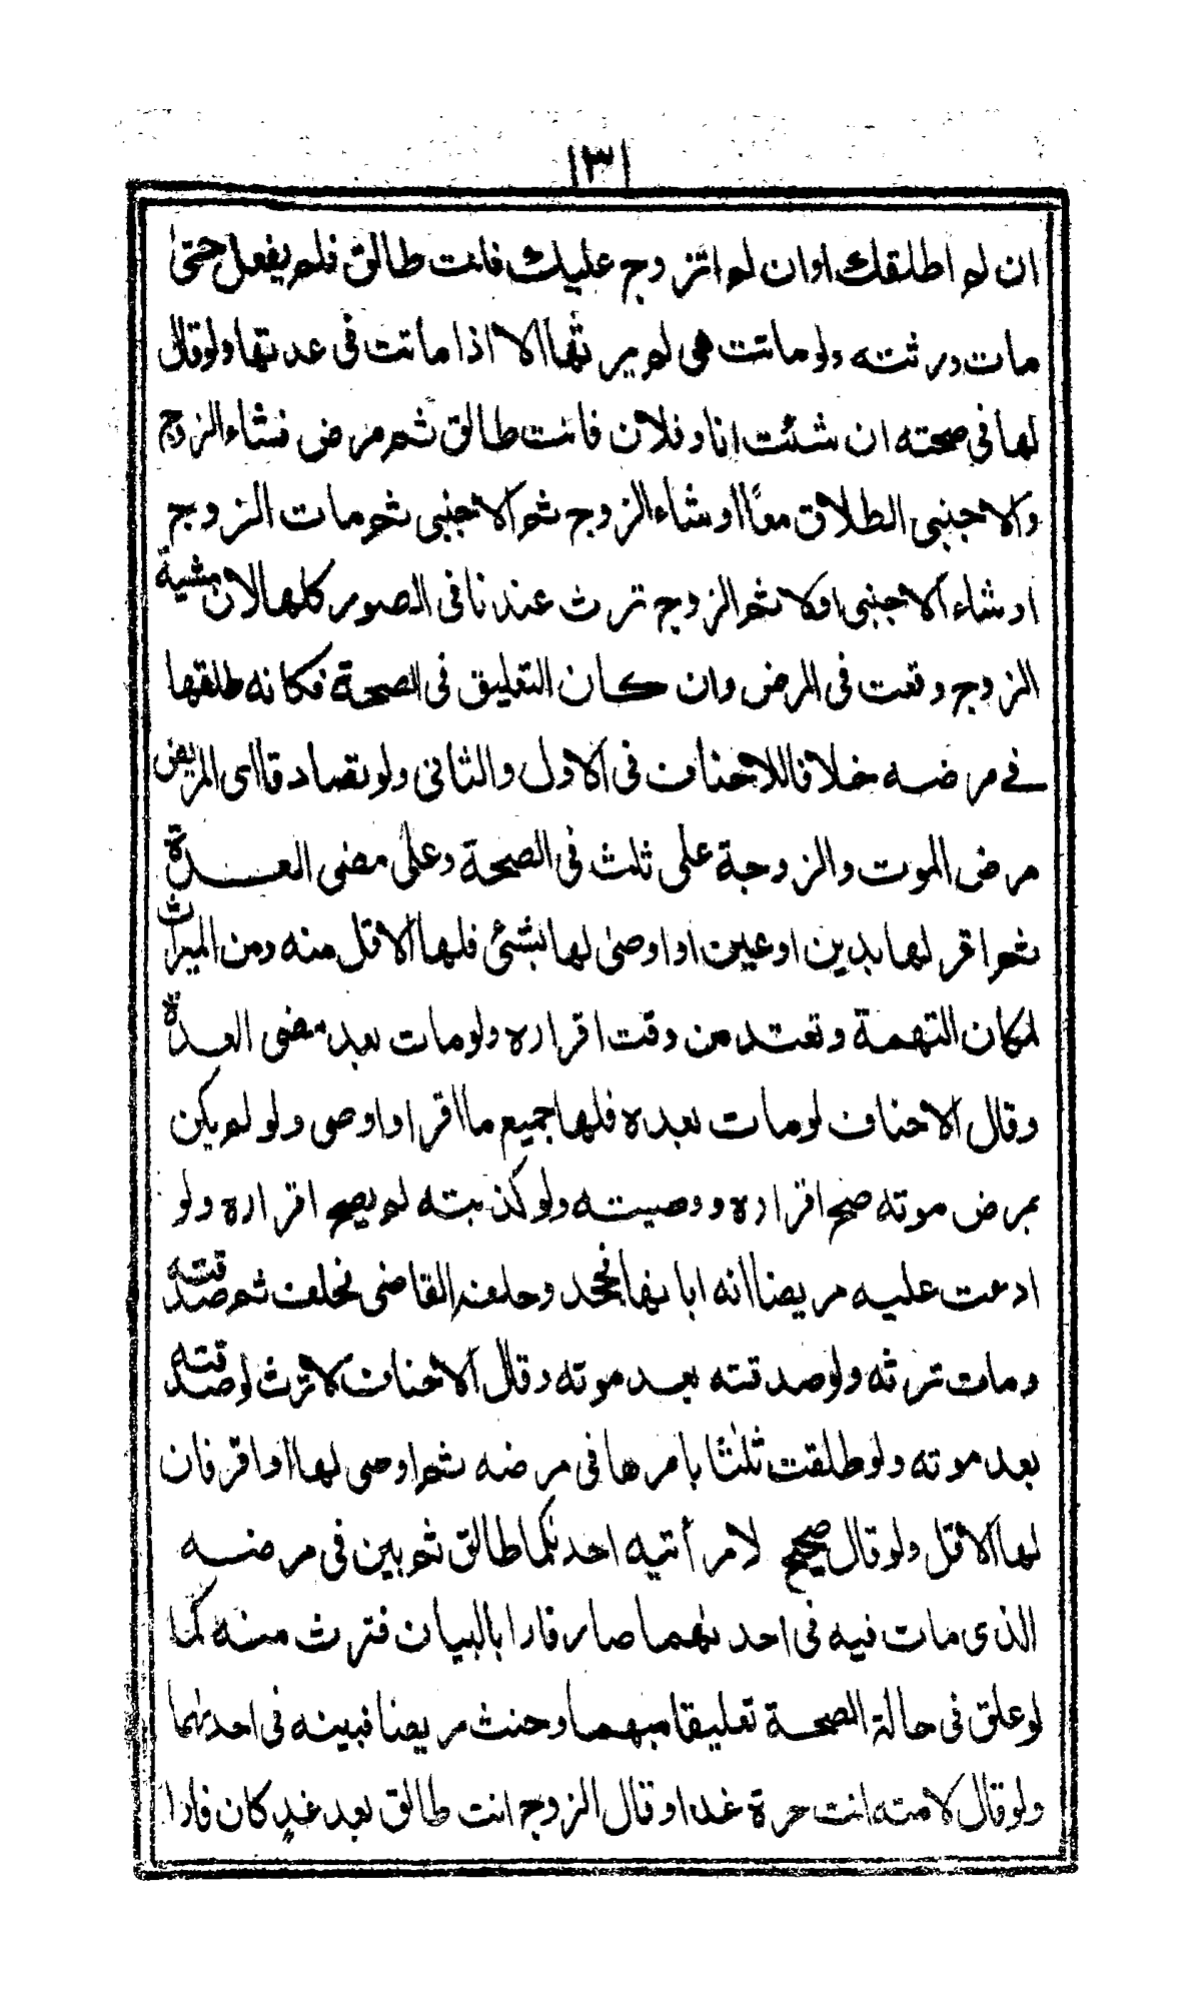 ١٣١
ان لم اطلقك اوان لم اتزوج عليك فانت طالق فلم يفعل حتى
مات ورثته ولو ماتت هى لم يرثها الا اذا ماتت فى عدتها ولو قال
لها فى صحته ان شئت انا و فلان فانت طالق ثم مرض فشاء الزوج
والاجنبى الطلاق معًا او شاء الزوج ثم الاجنبى ثم مات الزوج
او شاء الاجنبى اولا ثم الزوج ترث عندنا فى الصور كلها لان مشية
الزوج وقعت فى المرض وان كان التعليق فى الصحة فكانه طلقها
فى مرضه خلافا للاحناف فى الاول والثانى ولو تصادقا اى المريض
مرض الموت والزوجة على ثلث فى الصحة وعلى مضى العدة
ثم اقر لها بدين او عين او اوصى لها بشئ فلها الاقل منه ومن الميراث
لمكان التهمة وتعتد من وقت اقراره ولو مات بعد مضى العدة
وقال الاحناف لو مات بعده فلها جميع ما اقر او اوصى ولو لم يكن
بمرض موته صح اقراره و وصيته ولو كذبته لم يصح اقراره ولو
ادعت عليه مريضا انه ابانها فجحد وحلفه القاضى فحلف ثم صدقته
ومات ترثه ولو صدقته بعد موته وقال الاحناف لا ترث لو صدقته
بعد موته ولو طلقت ثلثا بامرها فى مرضه ثم اوصى لها او اقر فان
لها الاقل ولو قال صحيح لامرأتيه احدىكما طالق ثم بين فى مرضه
الذى مات فيه فى احدىهما صار فارا بالبيان فترث منه كما
لو علق فى حالة الصحة تعليقا مبهما وحنث مريضا فبينه فى احدىهما
ولو قال لامته انت حرة غدا وقال الزوج انت طالق بعد غد كان فارا